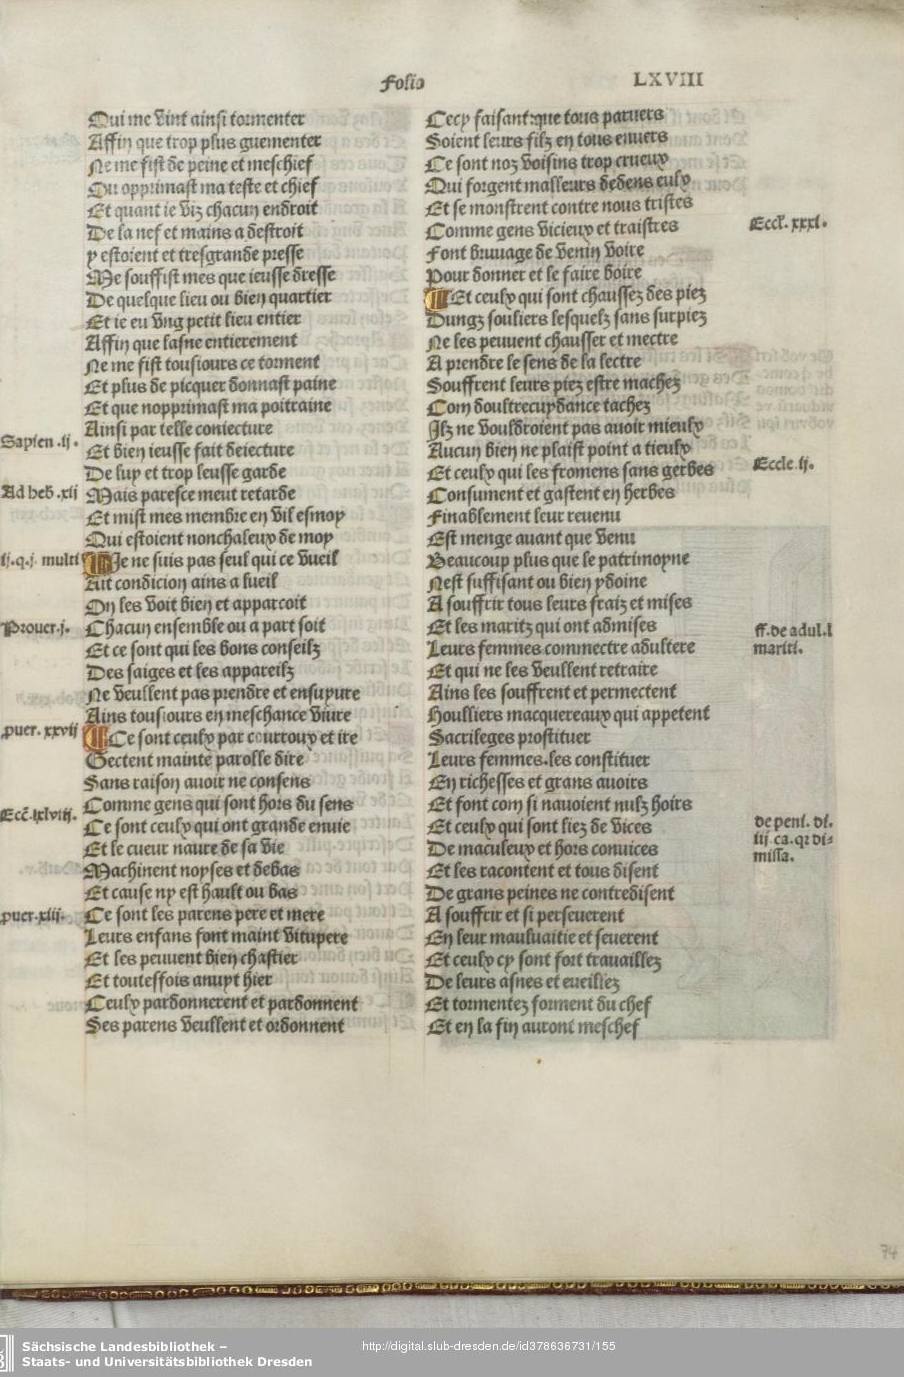 Folio
LXVIII
Qui me vint ainsi tormenter
Affin que trop plus guementer
Ne me fist de peine et meschief
Ou opprimast ma teste et chief
Et quant ie viz chacun endroit
De la nef et mains a destroit
y estoient et tresgrande presse
Me souffist mes que ieusse dresse
De quelque lieu ou bien quartier
Et ie eu vng petit lieu entier
Affin que lasne entierement
Ne me fist tousiours ce torment
Et plus de picquer donnast paine
Et que nopprimast ma poitraine
Ainsi par telle coniecture
Et bien ieusse fait deiecture
De luy et trop leusse garde
Mais paresce meut retarde
Et mist mes membre en vil esmoy
Qui estoient nonchaleux de moy
Je ne suis pas seul qui ce vueil
Ait condicion ains a sueil
On les voit bien et apparcoit
Chacun ensemble ou a part soit
Et ce sont qui les bons conseilz
Des saiges et les appareilz
Ne veullent pas prendre et ensuyure
Ains tousiours en meschance viure
Ce sont ceulx par courroux et ire
Gectent mainte parolle dire
Sans raison auoir ne consens
Comme gens qui sont hors du sens
Ce sont ceulx qui ont grande enuie
Et le cueur naure de sa vie
Machinent noyses et debas
Et cause ny est hault ou bas
Ce sont les parens pere et mere
Leurs enfans font maint vitupere
Et les peuuent bien chastier
Et toutesfois anuyt hier
Ceulx pardonnerent et pardonnent
Ses parens veullent et ordonnent
Sapien .ij.
Ad heb .xij
ij.q.j. multi
Prouer.j.
puer.xxvij
Ecc̄.lxlviij.
puer.xiij.
Cecy faisant:que tous paruers
Soient leurs filz en tous enuers
Ce sont noz voisins trop crueux
Qui forgent malleurs dedens eulx
Et se monstrent contre nous tristes
Comme gens vicieux et traistres
Font bruuage de venin voire
Pour donner et le faire boire
Et ceulx qui sont chaussez des piez
Dungz souliers lesquelz sans surpiez
Ne les peuuent chausser et mectre
A prendre le sens de la lectre
Souffrent leurs piez estre machez
Com doultrecuydance tachez
Ilz ne vouldroient pas auoir mieulx
Aucun bien ne plaist point a tieulx
Et ceulx qui les fromens sans gerbes
Consument et gastent en herbes
Finablement leur reuenu
Est menge auant que venu
Beaucoup plus que le patrimoyne
Nest suffisant ou bien ydoine
A souffrir tous leurs fraiz et mises
Et les maritz qui ont admises
Leurs femmes commectre adultere
Et qui ne les veullent retraire
Ains les souffrent et permectent
Houlliers macquereaux qui appetent
Sacrileges prostituer
Leurs femmes.les constituer
En richesses et grans auoirs
Et font com si nauoient nulz hoirs
Et ceulx qui sont liez de vices
De maculeux et hors conuices
Et les racontent et tous disent
De grans peines ne contredisent
A souffrir et si perseuerent
En leur mauluaitie et seuerent
Et ceulx cy sont fort trauaillez
De leurs asnes et eueillez
Et tormentez forment du chef
Et en la fin auront meschef
Eccl̄. xxxi.
Eccle ij.
ff.de adul.l
mariti.
de peni. di.
iij ca.qz di=
missa.
74
Sächsische Landesbibliothek –
Staats- und Universitätsbibliothek Dresden
http://digital.slub-dresden.de/id378636731/155